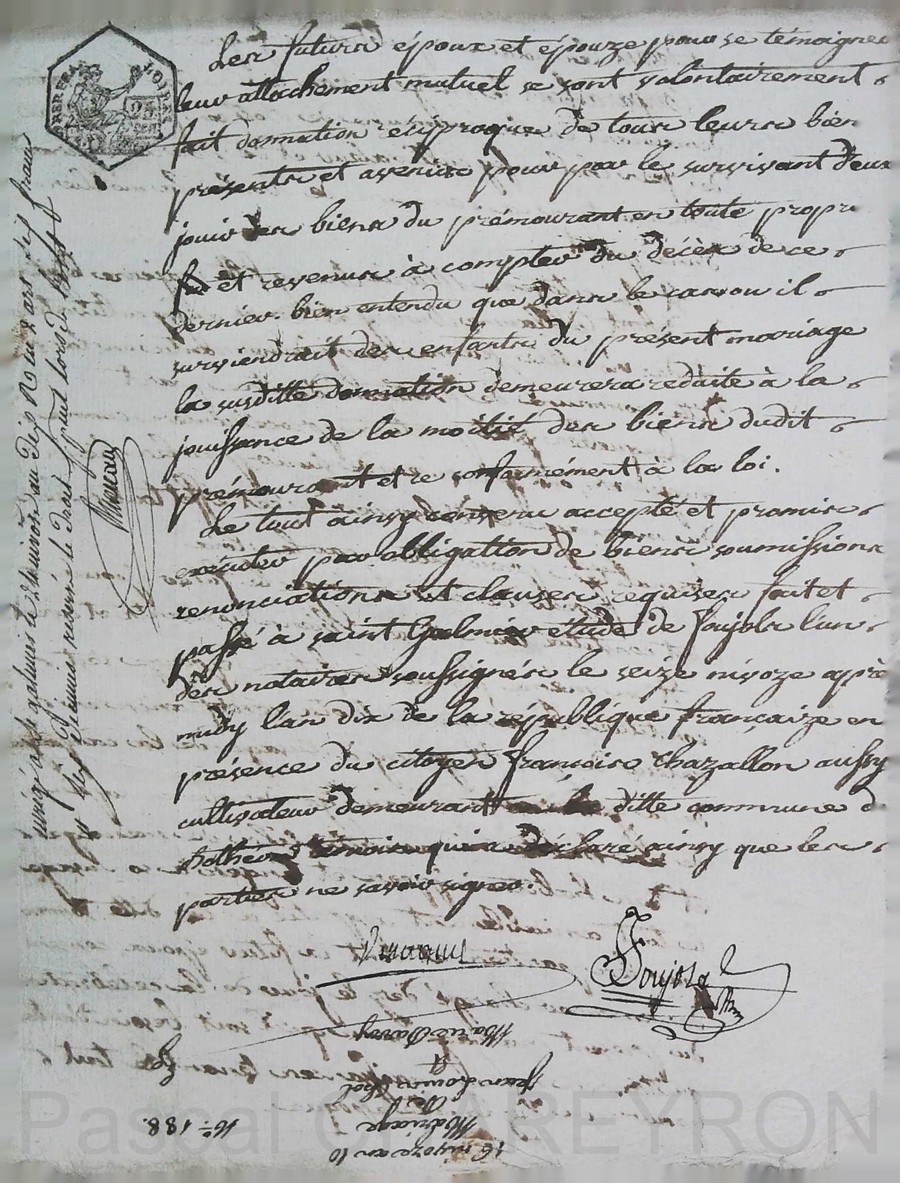 Les futurs époux et épouze pour se témoigner
leur attachement mutuel se sont volontairement
fait donnation réciproque de tous leurs bien
présents et avenirs pour par le survivant d'eux
jouir des biens du prémourant en toute propri
et revenus à compter du décès de ce
dernier. bien entendu que dans le cas ou il
surviendrait des enfants du présent mariage
la susditte donnation demeurera réduite à la
jouissance de la moitié des biens dudit
prémourant et ce conformément à la loi.
Le tout ainsy convenu accepté et promis
exécuter par obligation de biens soumissions
renonciations et clauses requises fait et
passé à saint Galmier étude de Soujols l'un
des notaires soussignés le seize nivoze après
midy l'an dix de la république françaize en
présence du citoyen françois chazallon aussy
cultivateur demeurant ditte commune d
témoin qui a déclaré ainsy que les
parties ne savoir signer.
Soujols
Marie
Jean
Mariage
16 nivoze an 10
No. 188
Pascal CHAREYRON